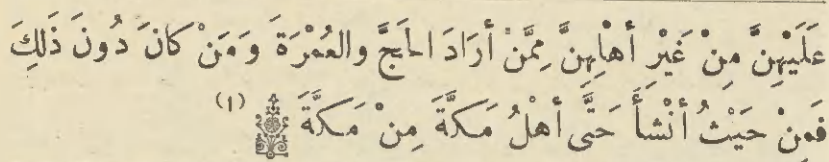 عَلَيْهِنَّ مِنْ غَيْرِ أَهْلِهِنَّ مِمَّنْ أَرَادَ الحَجَّ والعُمْرَةَ وَمَنْ كانَ دُونَ ذَلِكَ
فَمِنْ حَيْثُ أَنْشَأَ حَتَّى أَهْلُ مَكَّةَ مِنْ مَكَّةَ (١)